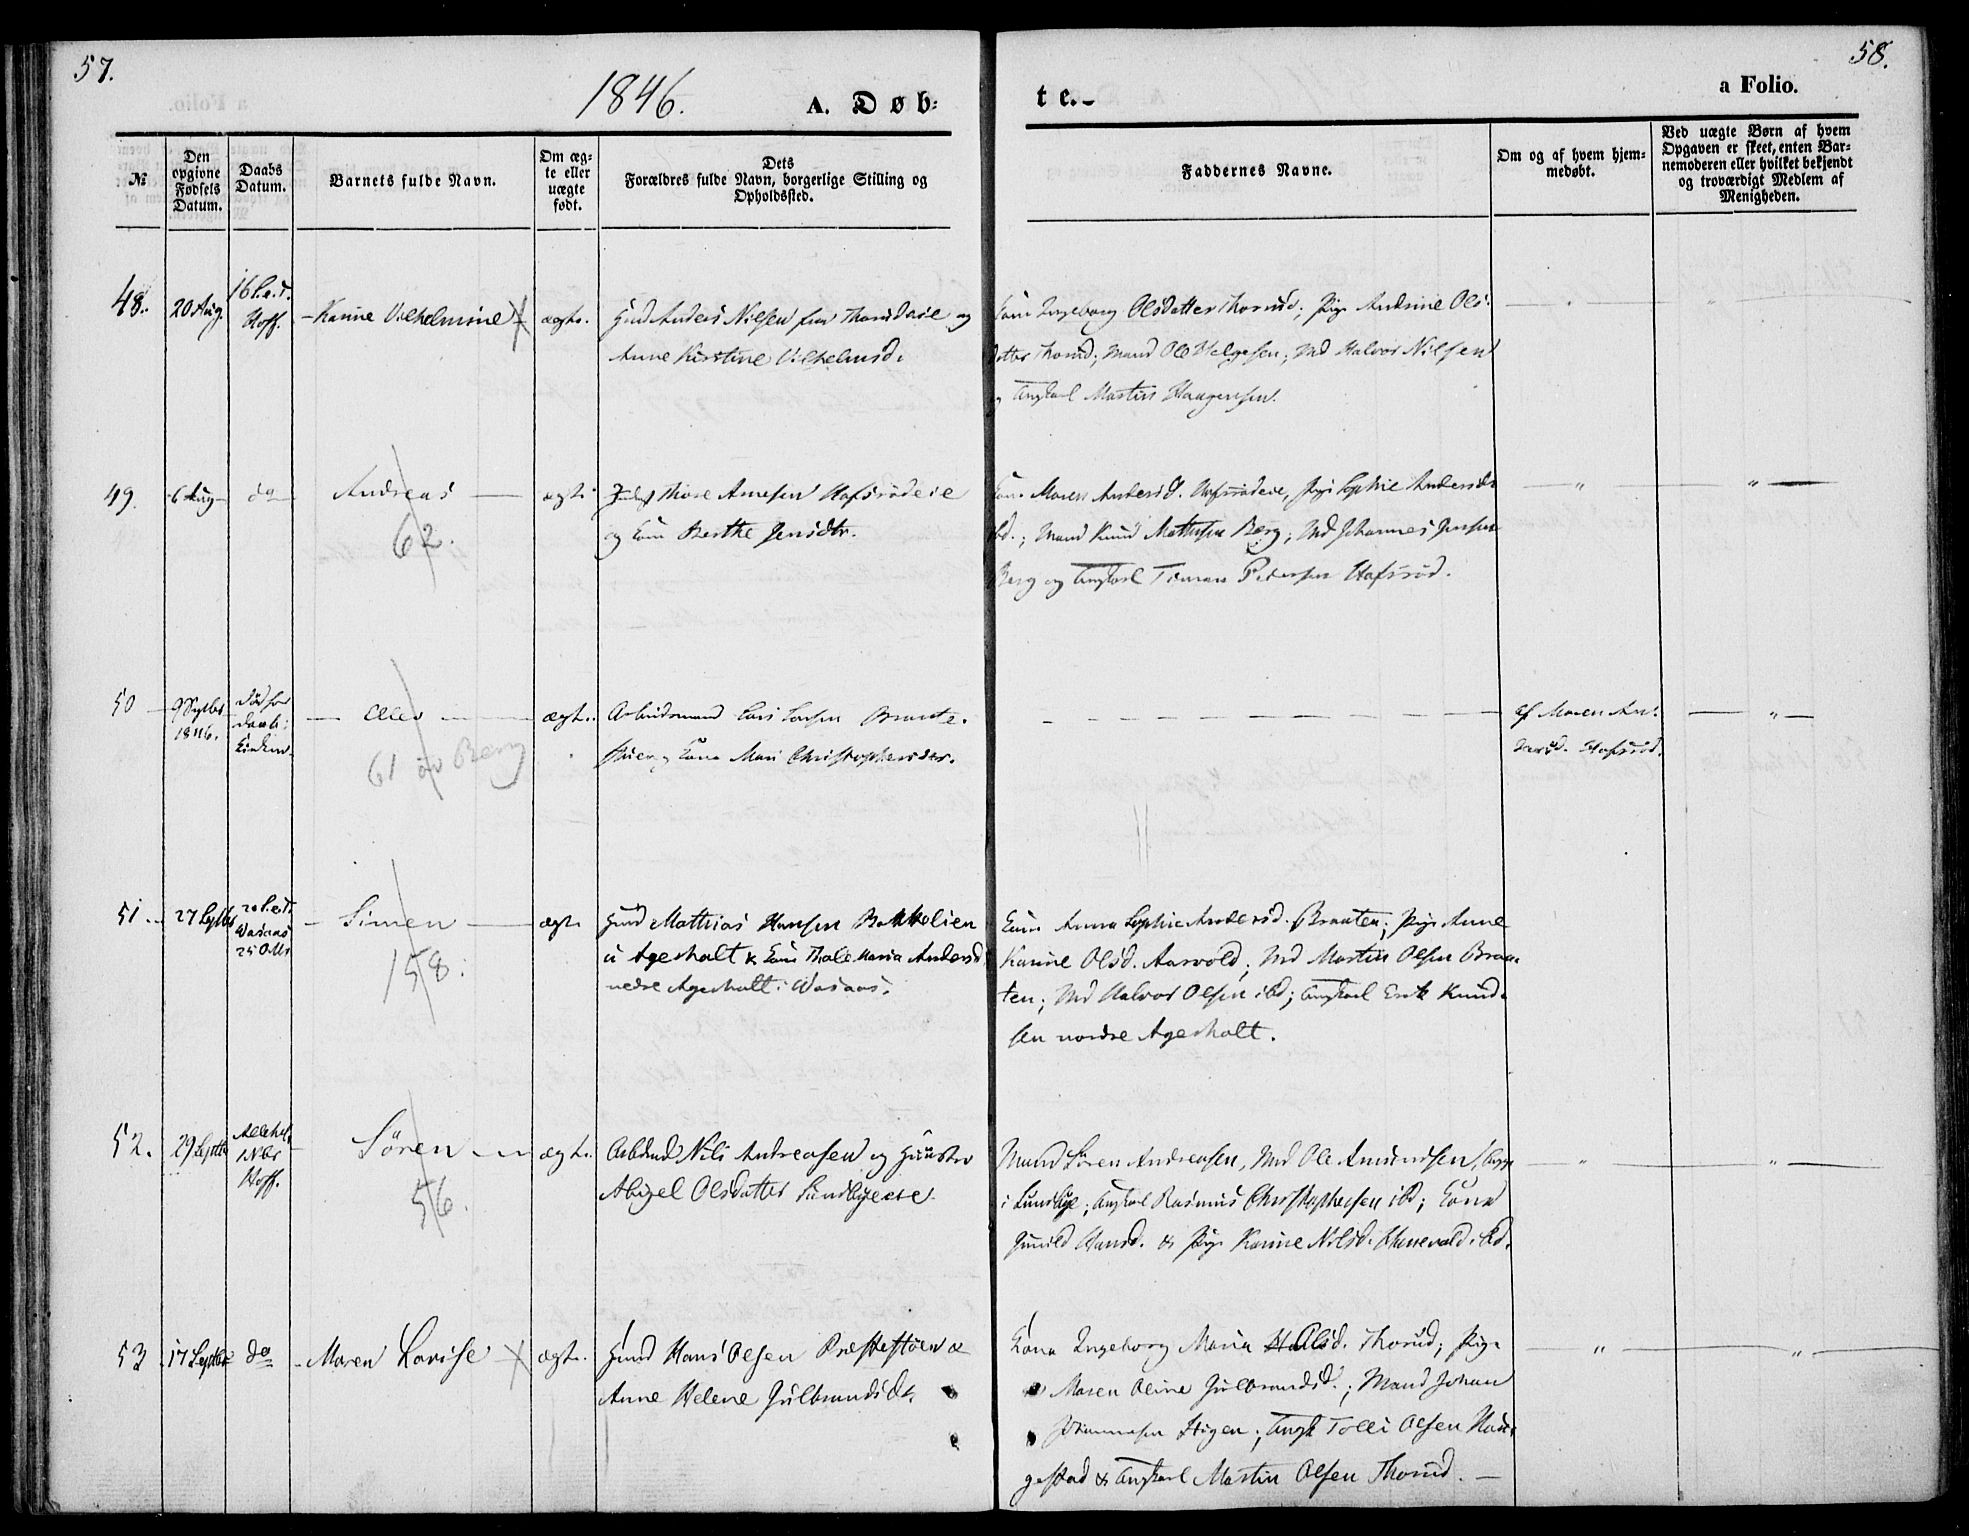 57.
58.
1846.
A. Døb-
te.
a Folio.
№
Den opgivne Fødsels Datum.
Daabs Datum.
Barnets fulde Navn.
Om ægte eller uægte født.
Dets Forældres fulde Navn, borgerlige Stilling og Opholdssted.
Faddernes Navne.
Om og af hvem hjemmedøbt.
Ved uægte Børn af hvem Opgaven er skeet, enten Barnemoderen eller hvilket bekjendt og troværdigt Medlem af Menigheden.
48. 20 Aug.
Hoff.
Karine Vilhelmine
ægte.
Anders Nilsen fra
og
Anne Kirstine Vilhelmsd.
Ingeborg Olsdatter Thorud; Pige Andrine Ols-
datter Thorud; Mand Ole Helgesen; Md Halvor Nilsen
og Ungkarl Martin Haagensen.
49. 6 Aug do
Andreas
62.
ægte
Thore Arnesen Hafsrødeie
og Kone Berthe Jensdtr.
Maren Andersd. Hafsrødeie, Pige Sophie Anders-
ibd.; Mand Knud Mathisen Berg; Md Johannes Jensen
Berg og Ungkarl Timan Pedersen Hafsrød.
50
9 Septbr
1846.
død før
Oliv
61 av Berg
ægte.
Arbeidsmand Lars Larsen
og Kone Mari Christophersdtr.
af Maren An-
dersd. Hafsrød.
51. 27 Septbr
Vasaas
25 Octbr
Simen
158.
ægte
Mathias Hansen Bakkolien
u Ageholt & Kone Thale Maria Andersd
nedre Ageholt i Vasaas.
Kone Anna Sophie Andersd. Braaten; Pige Anne
Karine Olsd. Aarvold; Md Martin Olsen Braa-
ten; Md Halvor Olsen ibd; Ungkarl Erik Knud-
sen nordre Ageholt.
52. 29 Septbr
Allehel.
1 Nbr
Hoff.
Sören
56.
ægte.
Arbdmd Nils Andreasen og Hustro
Abigel Olsdatter Sundbyeeie.
Mand Sören Andreasen, Md Ole Amundsen,
i Sundbye; Ungkarl Rasmus Christophersen ibd; Kone
Gunild Hansd. & Pige Karine Nilsd.
ibd.
53 17 Septbr do
Maren Lovise
ægte.
Hans Olsen Præstestøen &
Anne Helene Gulbrandsdtr.
Kone Ingeborg Maria
Olsd. Thorud; Pige
Maren Oline Gulbrandsd.; Mand Johan
Johannesen Stigen; Ungk Tolli Olsen
gestad & Ungkarl Martin Olsen Thorud.